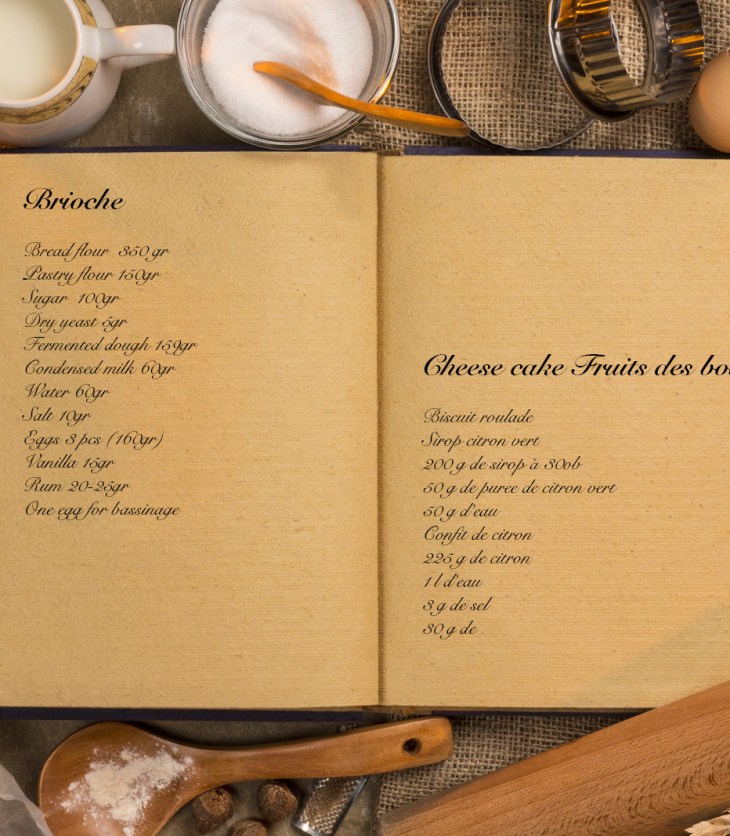 Brioche
Bread flour 350 gr
Pastry flour 150gr
Sugar 100gr
Dry yeast 5gr
Fermented dough 159gr
Condensed milk 60gr
Water 60gr
Salt 10gr
Eggs 3 pcs (160gr)
Vanilla 15gr
Rum 20-25gr
One egg for bassinage
Cheese cake Fruits des
Biscuit roulade
Sirop citron vert
200 g de sirop à 30vb
50 g de puree de citron vert
50 g d'eau
Confit de citron
225 g de citron
1 l d'eau
3 g de sel
30 g de